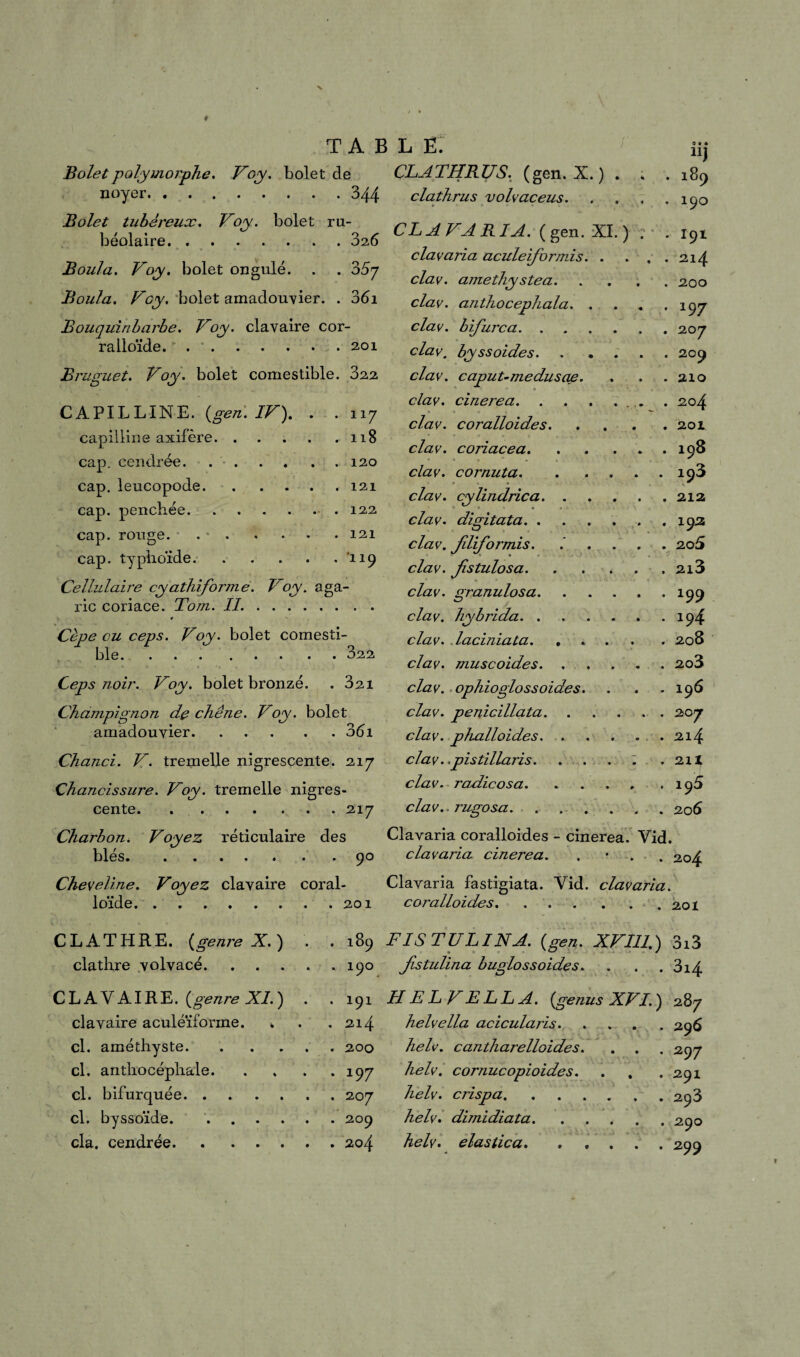 TABLE.
iij
Bolet polymorphe. Voy. bolet de
noyer. . . . . . . . . 344
Bolet tubéreux. Voy. bolet ru-
béolaire. . . . . . . . 326
Boula. Voy. bolet ongulé. . . 357
Boula. Voy. bolet amadouvier. . 361
Bouquinbarbe. Voy. clavaire cor-
ralloïde. . . . . . . . . 201
Bruguet. Voy. bolet comestible. 322
CAPILLINE. (gen. IV). . . 117
capilline axifère. . . . . . 118
cap. cendrée. . . . . . . 120
cap. leucopode. . . . . . 121
cap. penchée. . . . . . . 122
cap. rouge. . . . . . . . 121
cap. typhoïde. . . . . . 119
Cellulaire cyathiforme. Voy. aga-
ric coriace. Tom. II. . . . . . . .
Cèpe ou ceps. Voy. bolet comesti-
ble. . . . . . . . . . 322
Ceps noir. Voy. bolet bronzé. . 321
Champignon de chêne. Voy. bolet
amadouvier. . . . . . 361
Chanci. V. tremelle nigrescente. 217
Chancissure. Voy. tremelle nigres-
cente. . . . . . . . 217
Charbon. Voyez réticulaire des
blés. . . . . . . . . 90
Cheveline. Voyez clavaire coral-
loïde. . . . . . . . . 201
CLATHRE. (genre X.) . . 189
clathre volvacé. . . . . . 190
CLAVAIRE. (genre XI.) . . 191
clavaire aculéïforme. . . . 214
cl. améthyste. . . . . . 200
cl. anthocéphale. . . . . 197
cl. bifurquée. . . . . . . 207
cl. byssoïde. . . . . . . 209
cla. cendrée. . . . . . . 204
CLATHRUS. (gen. X.) . . . 189
clathrus volvaceus. . . . . 190
CLAVARIA. (gen. XI.) . . 191
clavaria aculeiformis. . . . . 214
clav. amethystea. . . . . 200
clav. anthocephala. . . . . 197
clav. bifurca. . . . . . . 207
clav. byssoides. . . . . . 209
clav. caput-medusæ. . . . 210
clav. cinerea. . . . . . . 204
clav. coralloides. . . . . 201
clav. coriacea. . . . . . 198
clav. cornuta. . . . . . 193
clav. cylindrica. . . . . . 212
clav. digitata. . . . . . . 192
clav. filiformis. . . . . . 205
clav. fistulosa. . . . . . 213
clav. granulosa. . . . . . 199
clav. hybrida. . . . . . . 194
clav. laciniata. . . . . . 208
clav. muscoides. . . . . . 203
clav. ophioglossoides. . . . 196
clav. penicillata. . . . . . 207
clav. phalloides. . . . . . 214
clav. pistillaris. . . . . . 211
clav. radicosa. . . . . . 195
clav. rugosa. . . . . . . 206
Clavaria coralloides - cinerea. Vid.
clavaria cinerea. . . . . 204
Clavaria fastigiata. Vid. clavaria
coralloides. . . . . . . 201
FISTULINA. (gen. XVIII.) 313
fistulina buglossoides. . . . 314
HELVELLA. (genus XVI.) 287
helvella acicularis. . . . . 296
helv. cantharelloides. . . . 297
helv. cornucopioides. . . . 291
helv. crispa. . . . . . . 293
helv. dimidiata. . . . . . 290
helv. elastica. . . . . . 299